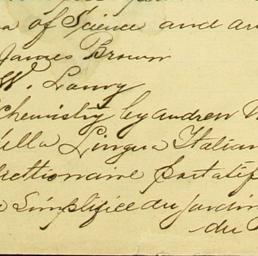 of Science and
James Brown
W. Lowry
Chemistry by Andrew
della Lingua Italian
dictionaire portatif
Simplifiée du Jardin
du